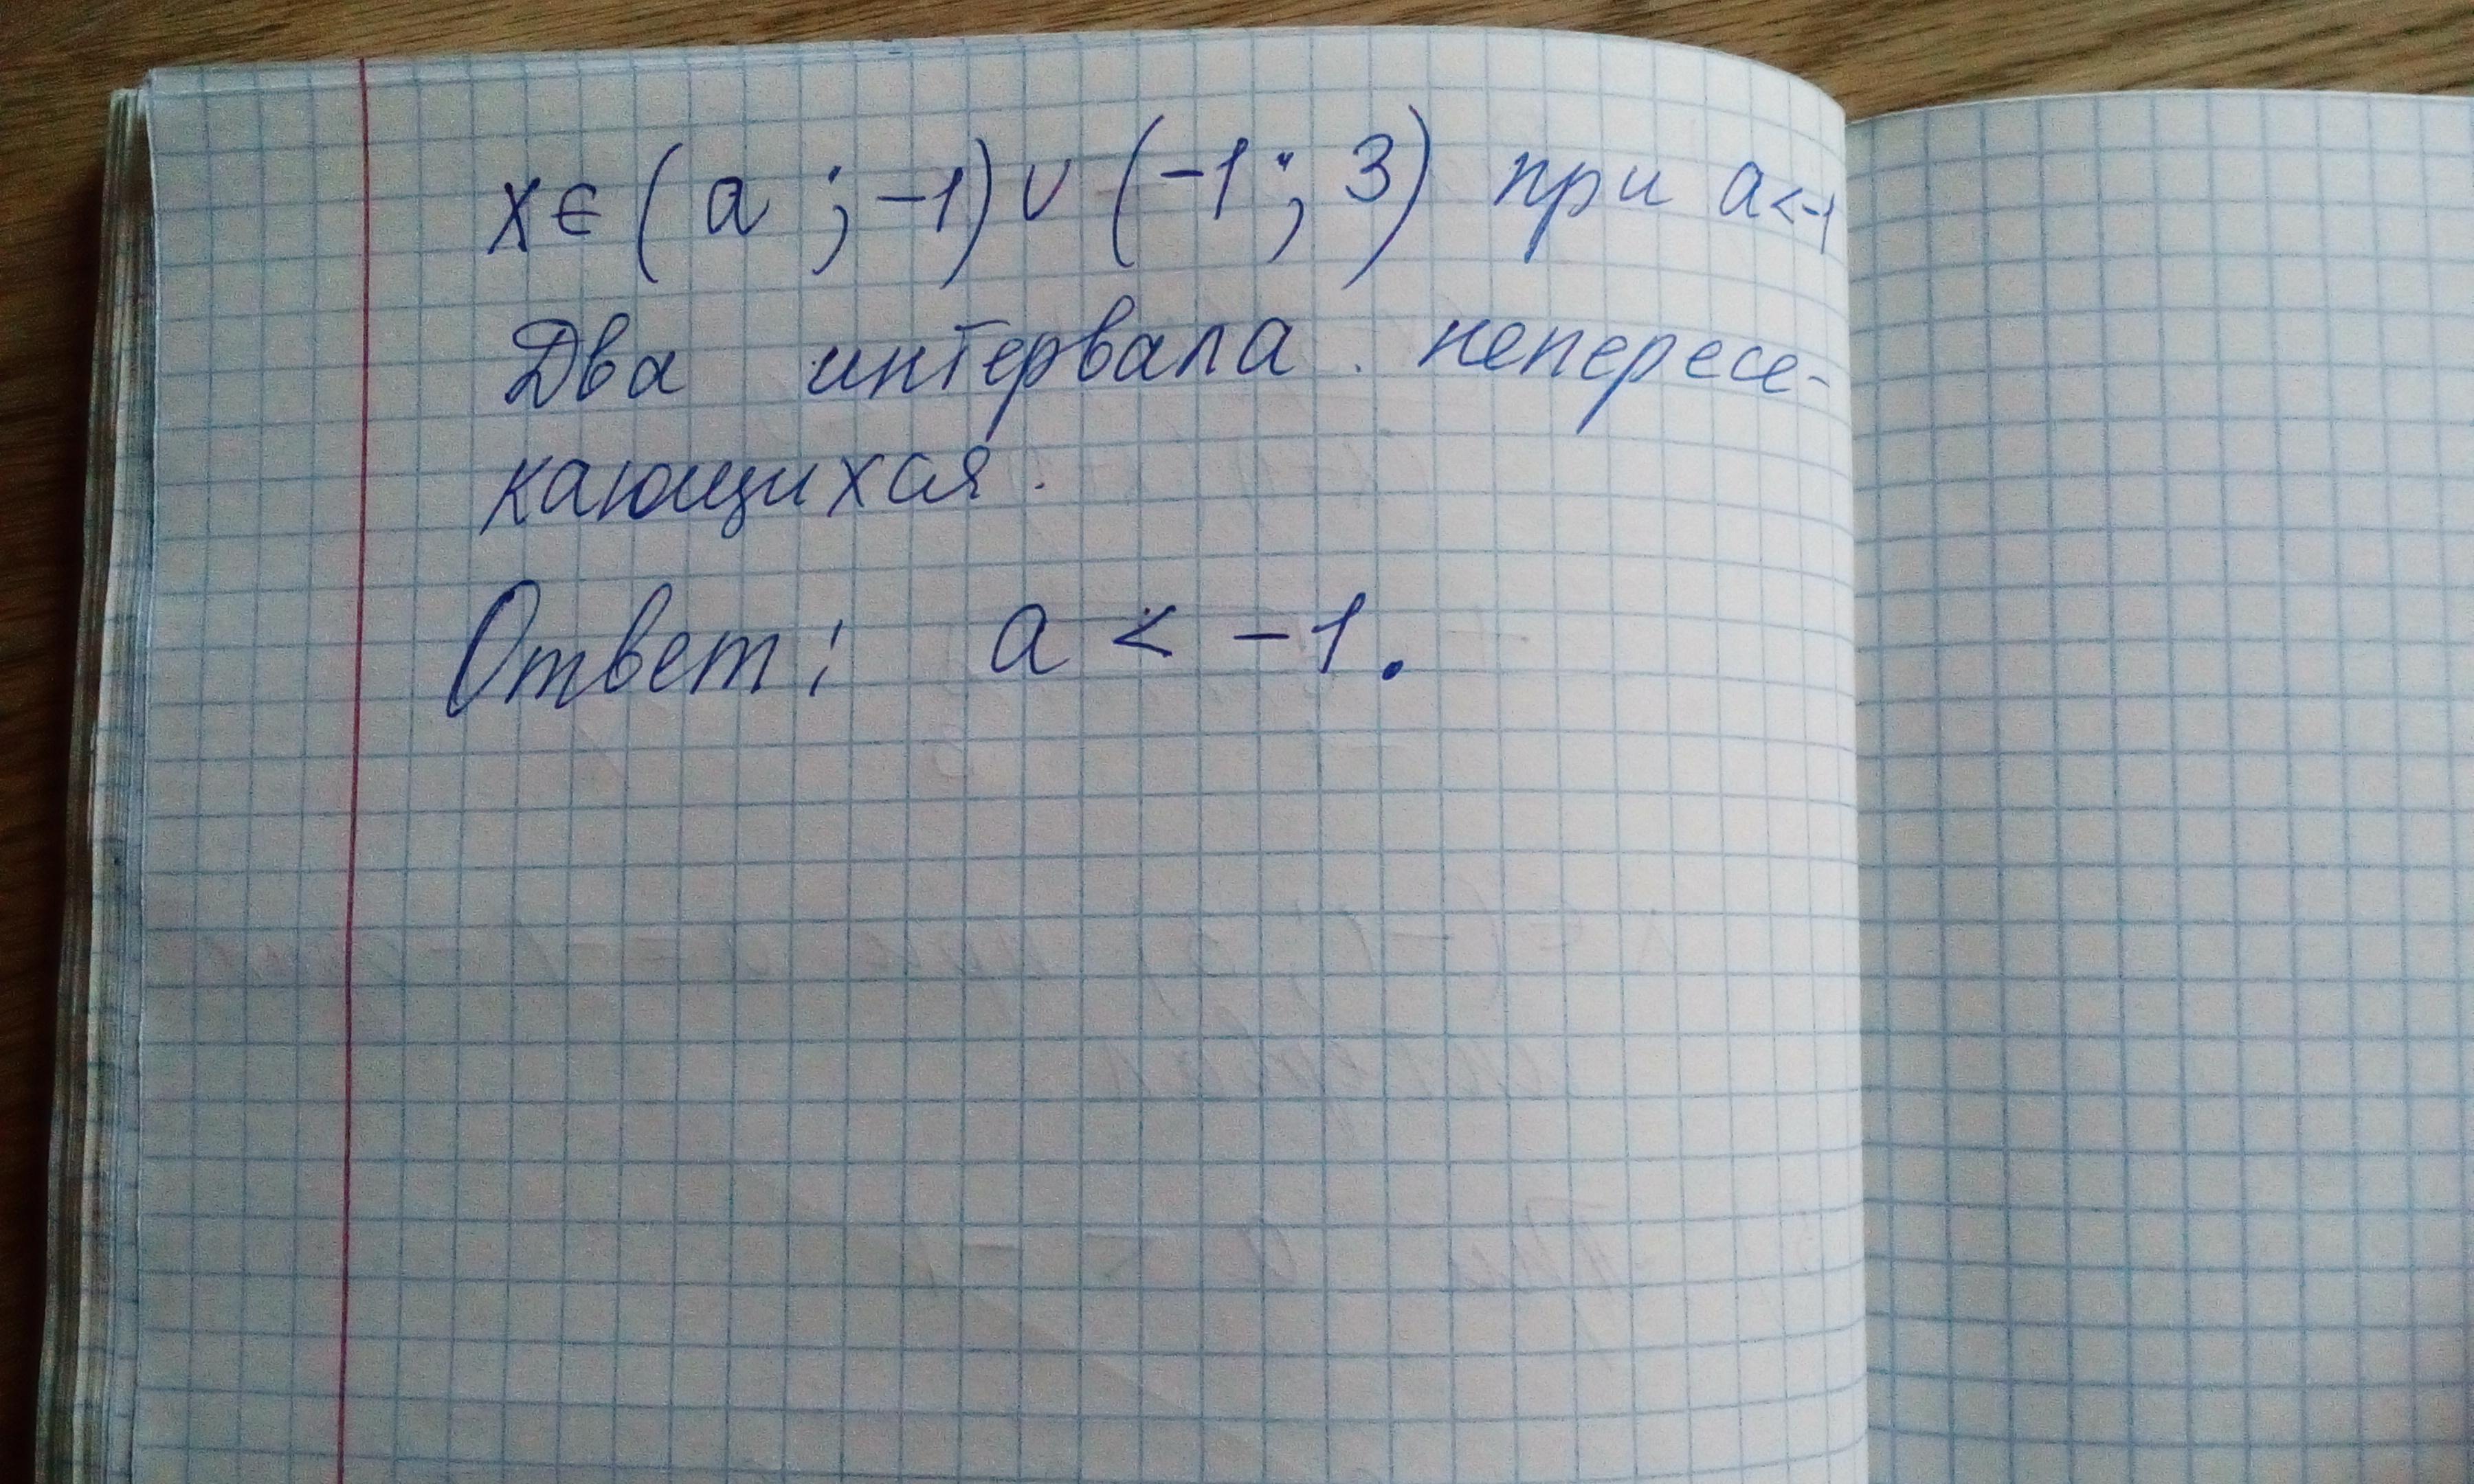 x∈(a ; -1)∪(-1 ; 3) при a<-1
Два интервала непересе-
кающихся.
Ответ: a < -1.